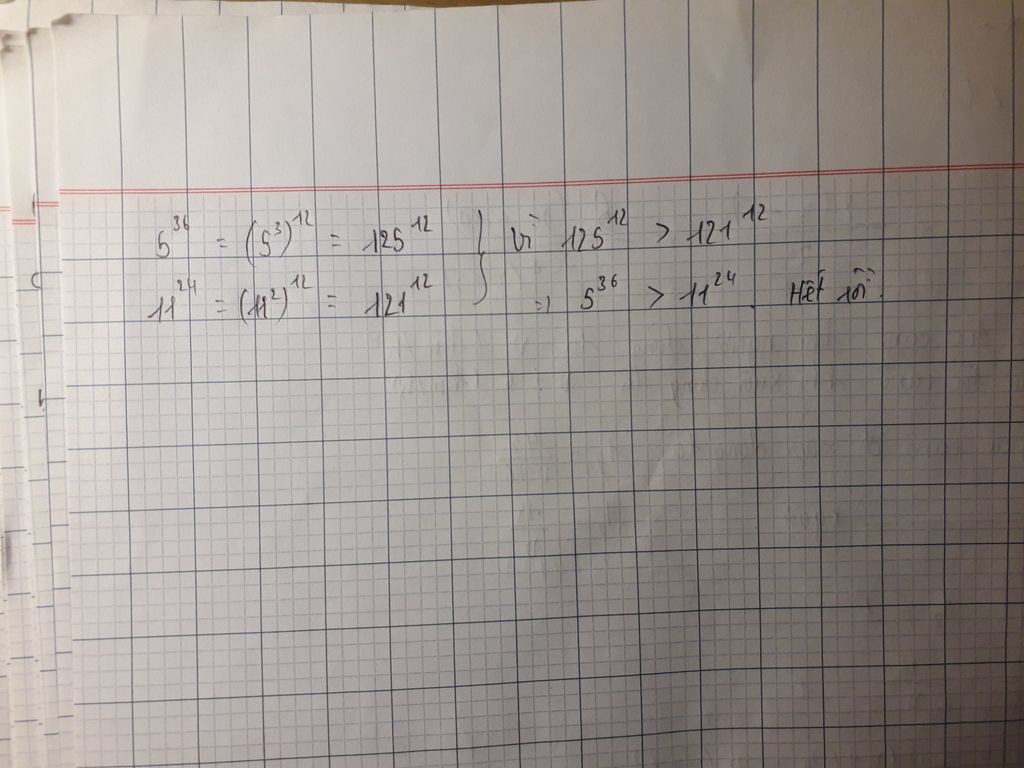 5³⁶ = (5³)¹² = 125¹² } Vì 125¹² > 121¹²
11²⁴ = (11²)¹² = 121¹² => 5³⁶ > 11²⁴. Hết rồi.